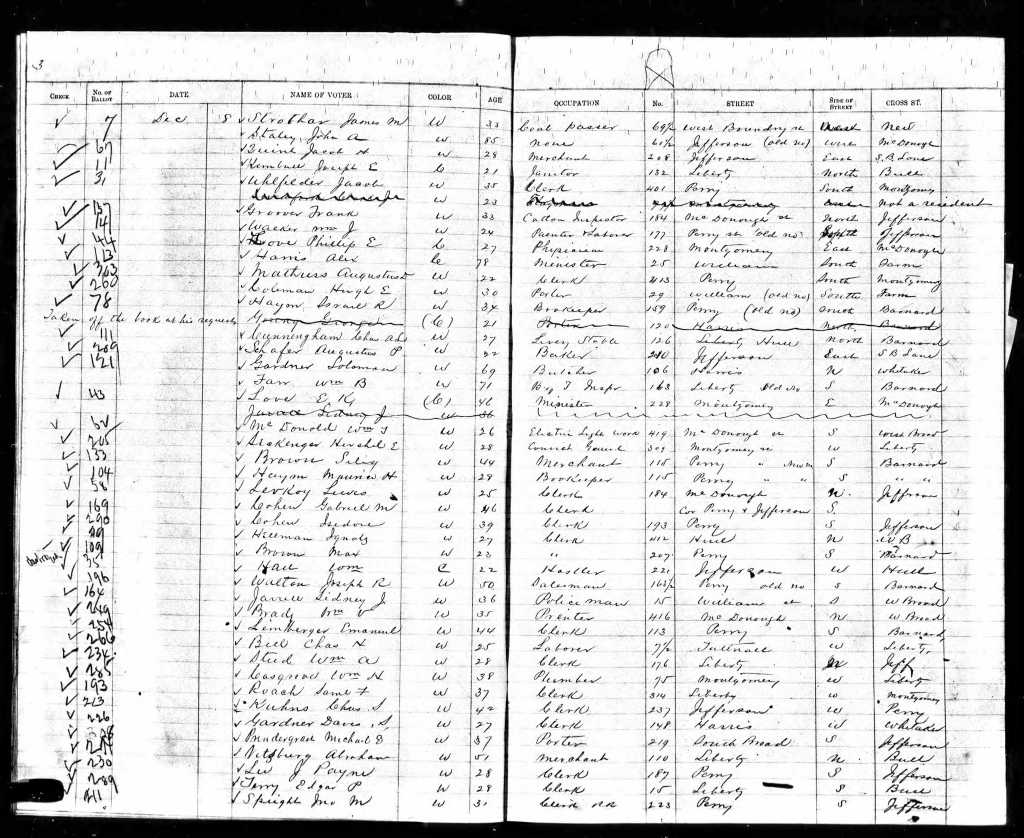 3
CHECK No. OF BALLOT DATE NAME OF VOTER COLOR AGE OCCUPATION No. STREET SIDE OF STREET CROSS ST.
7 Dec 8 Strobhar James M W 33 Coal passer 69½ West Boundry st West New
Staley John A W 85 None 60½ Jefferson (old no) West McDonogh
Quine Jacob H W 28 Merchant 208 Jefferson East S. B. Lane
Kimbull Joseph E C 21 Janitor 132 Liberty North Bull
31 Uhlfelder Jacob W 35 Clerk 401 Perry South Montgomery
W 23 Not a resident
137 Groover Frank W 33 Cotton Inspector 184 McDonough st North Jefferson
14 Walker Wm J W 24 Painter & Laborer 177 Perry st (old no) Jefferson
44 Love Phillip E C 27 Physician 228 Montgomery East McDonogh
113 Harris Alix C 78 Minister 25 William South Farm
363 Mathiess Augustus W 22 Clerk 413 Perry South Montgomery
260 Coleman Hugh E W 30 Porter 29 William (old no) South Farm
78 Haym Israel R W 34 Bookeeper 159 Perry (old no) South Barnard
Taken off the book at his request Young George (C) 21 120 Harris North Barnard
111 Cunningham Chas W 27 Livery Stable 136 Liberty Hull North Barnard
209 Schafer Augustus P W 32 Barker 210 Jefferson East S B Lane
121 Gardner Soloman W 69 Butcher 106 Harris N Whitaker
Farr Wm B W 71 163 Liberty Old No S Barnard
43 Love E. K. (C) 46 Minister 228 Montgomery E McDonogh
Jarrell Sidney J W 36
62 McDonald Wm J W 26 Electric Light Work 419 McDonough st S West Broad
205 Herchel E W 28 Convict Guard 309 Montgomery st W Liberty
133 Brown W 44 Merchant 115 Perry " S Barnard
104 Haym Maurice H W 28 Bookeeper 115 Perry " " S " "
58 Levkoy Lewis W 25 Clerk 184 McDonough N. Jefferson
169 Cohen Gabriel M W 46 Clerk Cor Perry & Jefferson S.
290 Cohen Isedore W 39 Clerk 193 Perry S Jefferson
Hillman Ignatz W 27 Clerk 412 Hull N W B
109 Brown Max W 23 " 207 Perry S Barnard
35 Hall Wm C 22 Hostler 221 Jefferson W Hull
196 Walton Joseph R W 50 Salesman 162½ Perry old no S Barnard
164 Jarrell Sidney J W 36 Police man 15 William st S W Broad
249 Brady Wm V W 35 Printer 416 McDonough N W Broad
254 Limberger Emanuel W 44 Clerk 113 Perry S Barnard
266 Bell Chas H W 25 Laborer 7½ Tattnall W Liberty
234 Steed Wm A W 28 Clerk 176 Liberty N Jeff
285 Cosgrove Wm H W 38 Plumber 75 Montgomery W Liberty
193 Roach Saml F W 37 Clerk 314 Liberty W Montgomery
213 Kuhns Chas. S W 42 Clerk 237 Jefferson W Perry
226 Gardner Davis. S W 27 Clerk 148 Harris W Whitaker
Prendergrast Michael E W 37 Porter 219 South Broad S Jefferson
230 Abraham W 51 Merchant 110 Liberty N. Bull
Lee J Payne W 28 Clerk 187 Perry S Jefferson
289 Terry Edgar P W 28 Clerk 15 Liberty S Bull
141 Speight Jno M W 31 Clerk old 223 Perry S Jefferson